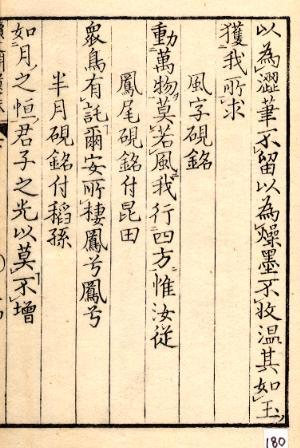 以為澀筆不留以為燥墨不收温其如玉
獲我所求
風字硯銘
動萬物莫若風我行四方惟汝從
鳳尾硯銘付昆田
衆鳥有託爾安所棲鳳兮鳳兮
半月硯銘付稻孫
如月之恒君子之光以莫不增
180